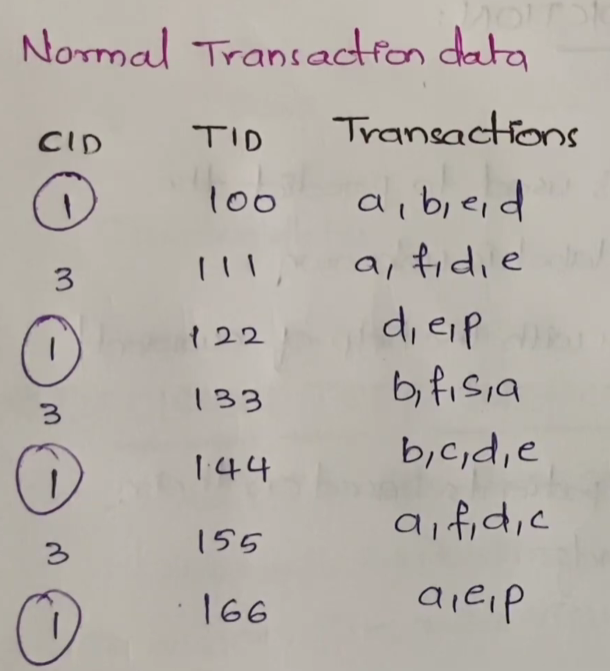 Normal Transaction data
CID TID Transactions
1 100 a, b, e, d
3 111 a, f, d, e
1 122 d, e, p
3 133 b, f, s, a
1 144 b, c, d, e
3 155 a, f, d, c
1 166 a, e, p